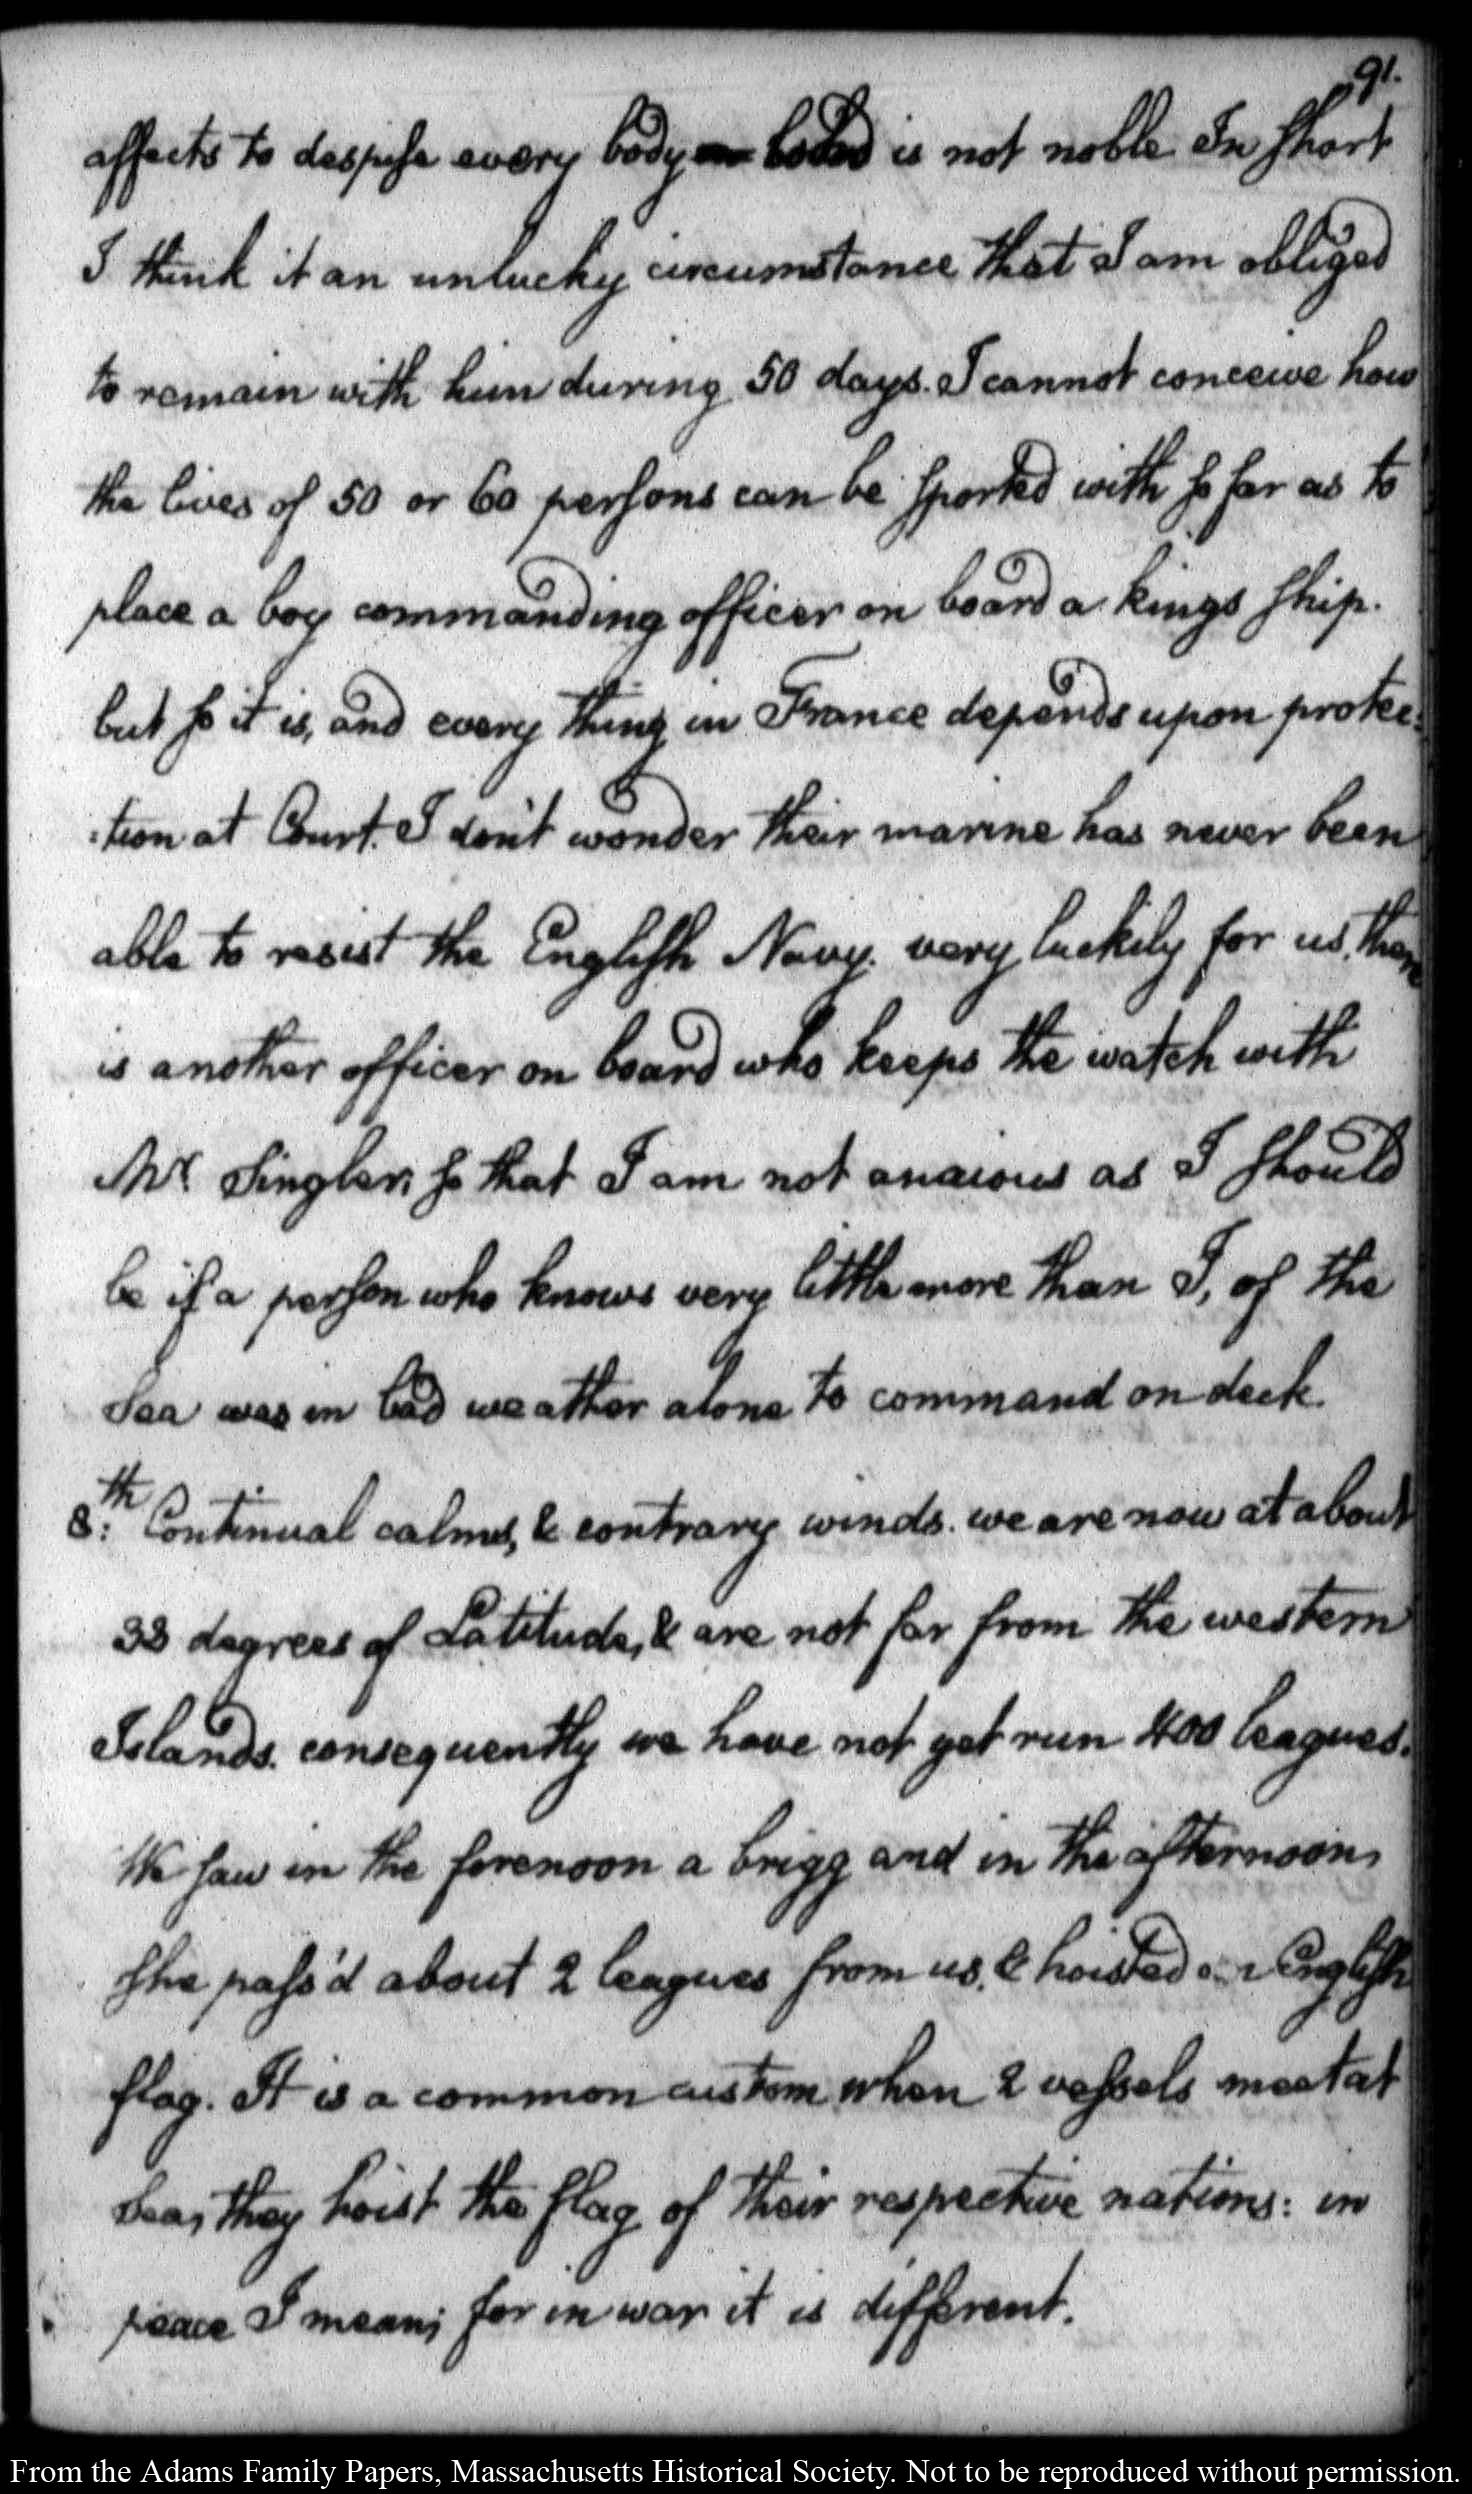 91.
affects to despise every body is not noble. In short
I think it an unlucky circumstance that I am obliged
to remain with him during 50 days. I cannot conceive how
the lives of 50 or 60 persons can be sported with so far as to
place a boy commanding officer on board a kings ship.
but so it is, and every thing in France depends upon protec:
:tion at Court. I don't wonder their marine has never been
able to resist the English Navy. very luckily for us, there
is another officer on board who keeps the watch with
Mr. Singler, so that I am not anxious as I should
be if a person who knows very little more than I, of the
Sea was in bad weather alone to command on deck.
8:th Continual calms, & contrary winds. we are now at about
33 degrees of Latitude, & are not far from the western
Islands. consequently we have not yet run 400 leagues.
We saw in the forenoon a brigg and in the afternoon,
she pass'd about 2 leagues from us, & hoisted an English
flag. It is a common custom when 2 vessels meet at
Sea, they hoist the flag of their respective nations: in
peace I mean; for in war it is different.
From the Adams Family Papers, Massachusetts Historical Society. Not to be reproduced without permission.